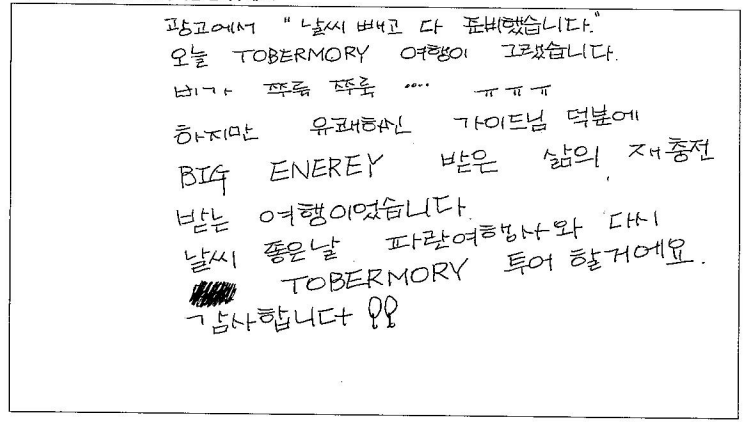 광고에서 "날씨 빼고 다 준비했습니다."
오늘 TOBERMORY 여행이 그랬습니다.
비가 쭈룩 쭈룩 .... ㅠㅠㅠ
하지만 유쾌하신 가이드님 덕분에
BIG ENEREY 받은 삶의 재충전
받는 여행이었습니다.
날씨 좋은날 파란여행사와 다시
TOBERMORY 투어 할거에요.
감사합니다!!